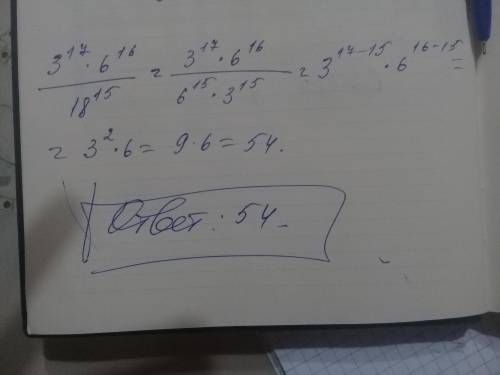 3^17 · 6^16 / 18^15 = 3^17 · 6^16 / 6^15 · 3^15 = 3^17-15 · 6^16-15 =
= 3^2 · 6 = 9 · 6 = 54.
Ответ: 54.